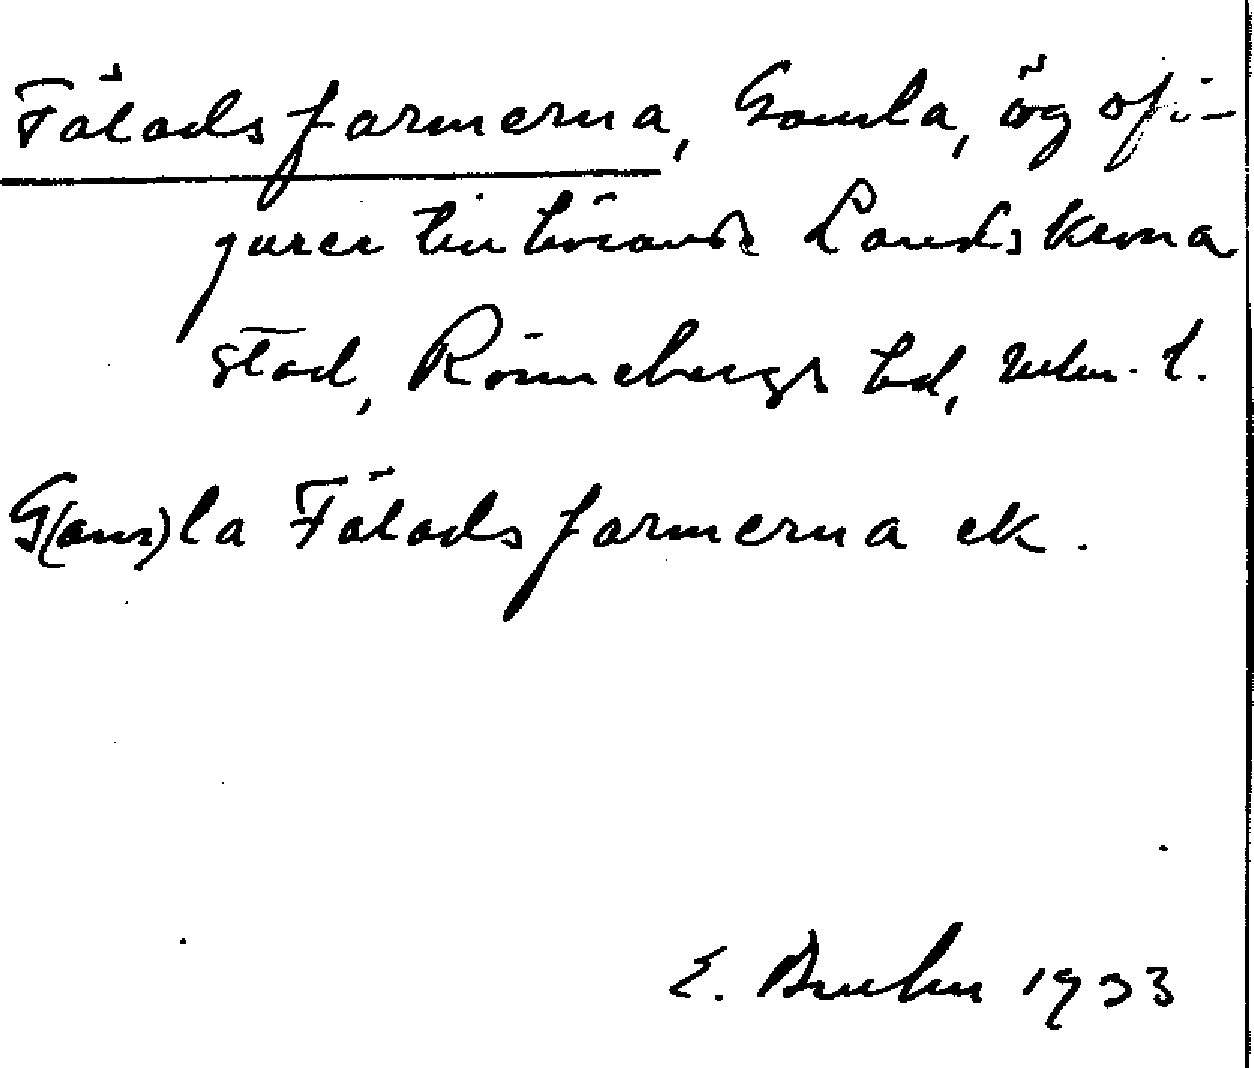 Fäladsfarmerna, Gamla, äg ofi-
gurer tillhörande Landskrona
stad, Rönnebergs hd, Mlm. l.
G(am)la Fäladsfarmerna ek.
E. Bruhn 1933